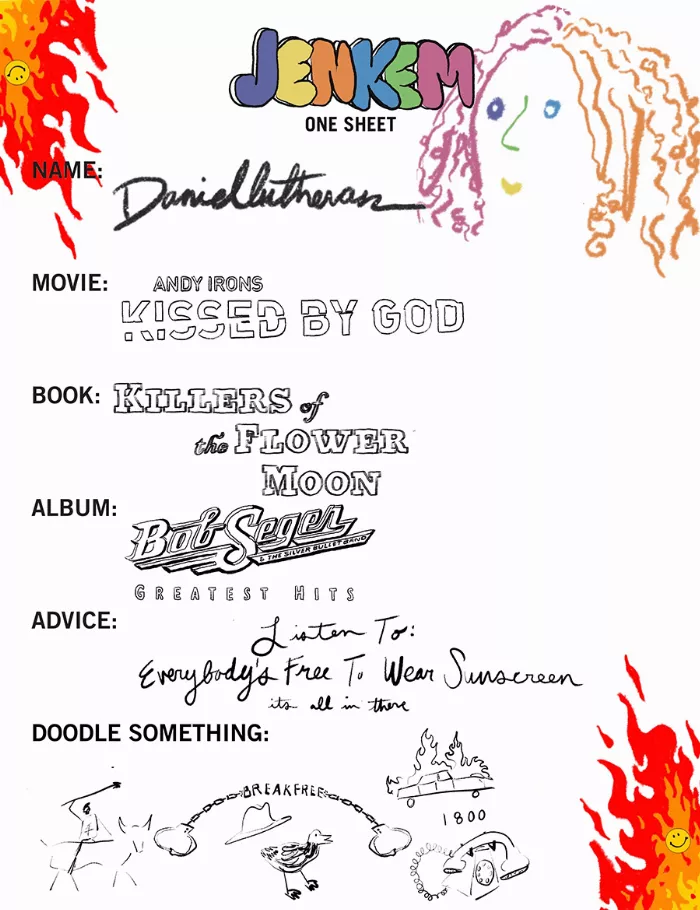 JENKEM
ONE SHEET
NAME: Daniel Lutheran
MOVIE: ANDY IRONS
KISSED BY GOD
BOOK: KILLERS of
the FLOWER
MOON
ALBUM: Bob Seger
& THE SILVER BULLET BAND
GREATEST HITS
ADVICE: Listen To:
Everybody's Free To Wear Sunscreen
its all in there
DOODLE SOMETHING:
BREAKFREE
1800